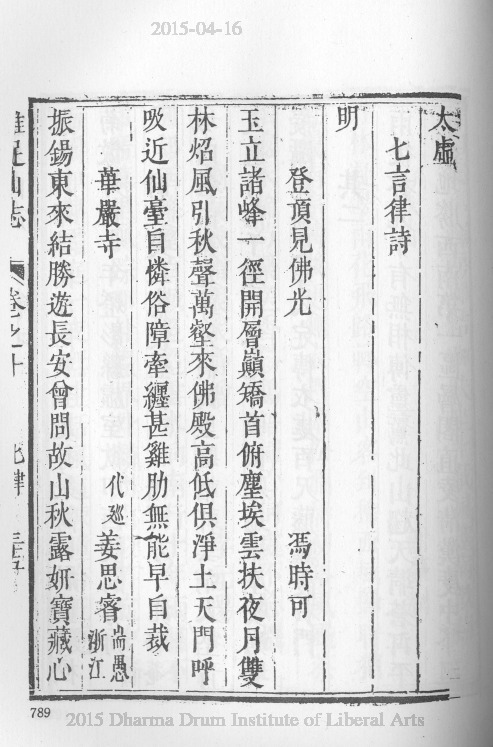 2015-04-16
太虛
七言律詩
明
登頂見佛光 馮時可
玉立諸峰一徑開層巔矯首俯塵埃雲扶夜月雙
林炤風引秋聲萬壑來佛殿高低俱淨土天門呼
吸近仙臺自憐俗障牽纏甚雞肋無能早自裁
華嚴寺 代巡 姜思睿 耑愚 浙江
振錫東來結勝遊長安曾問故山秋露妍寶藏心
山志 卷之十 七律
789
2015 Dharma Drum Institute of Liberal Arts